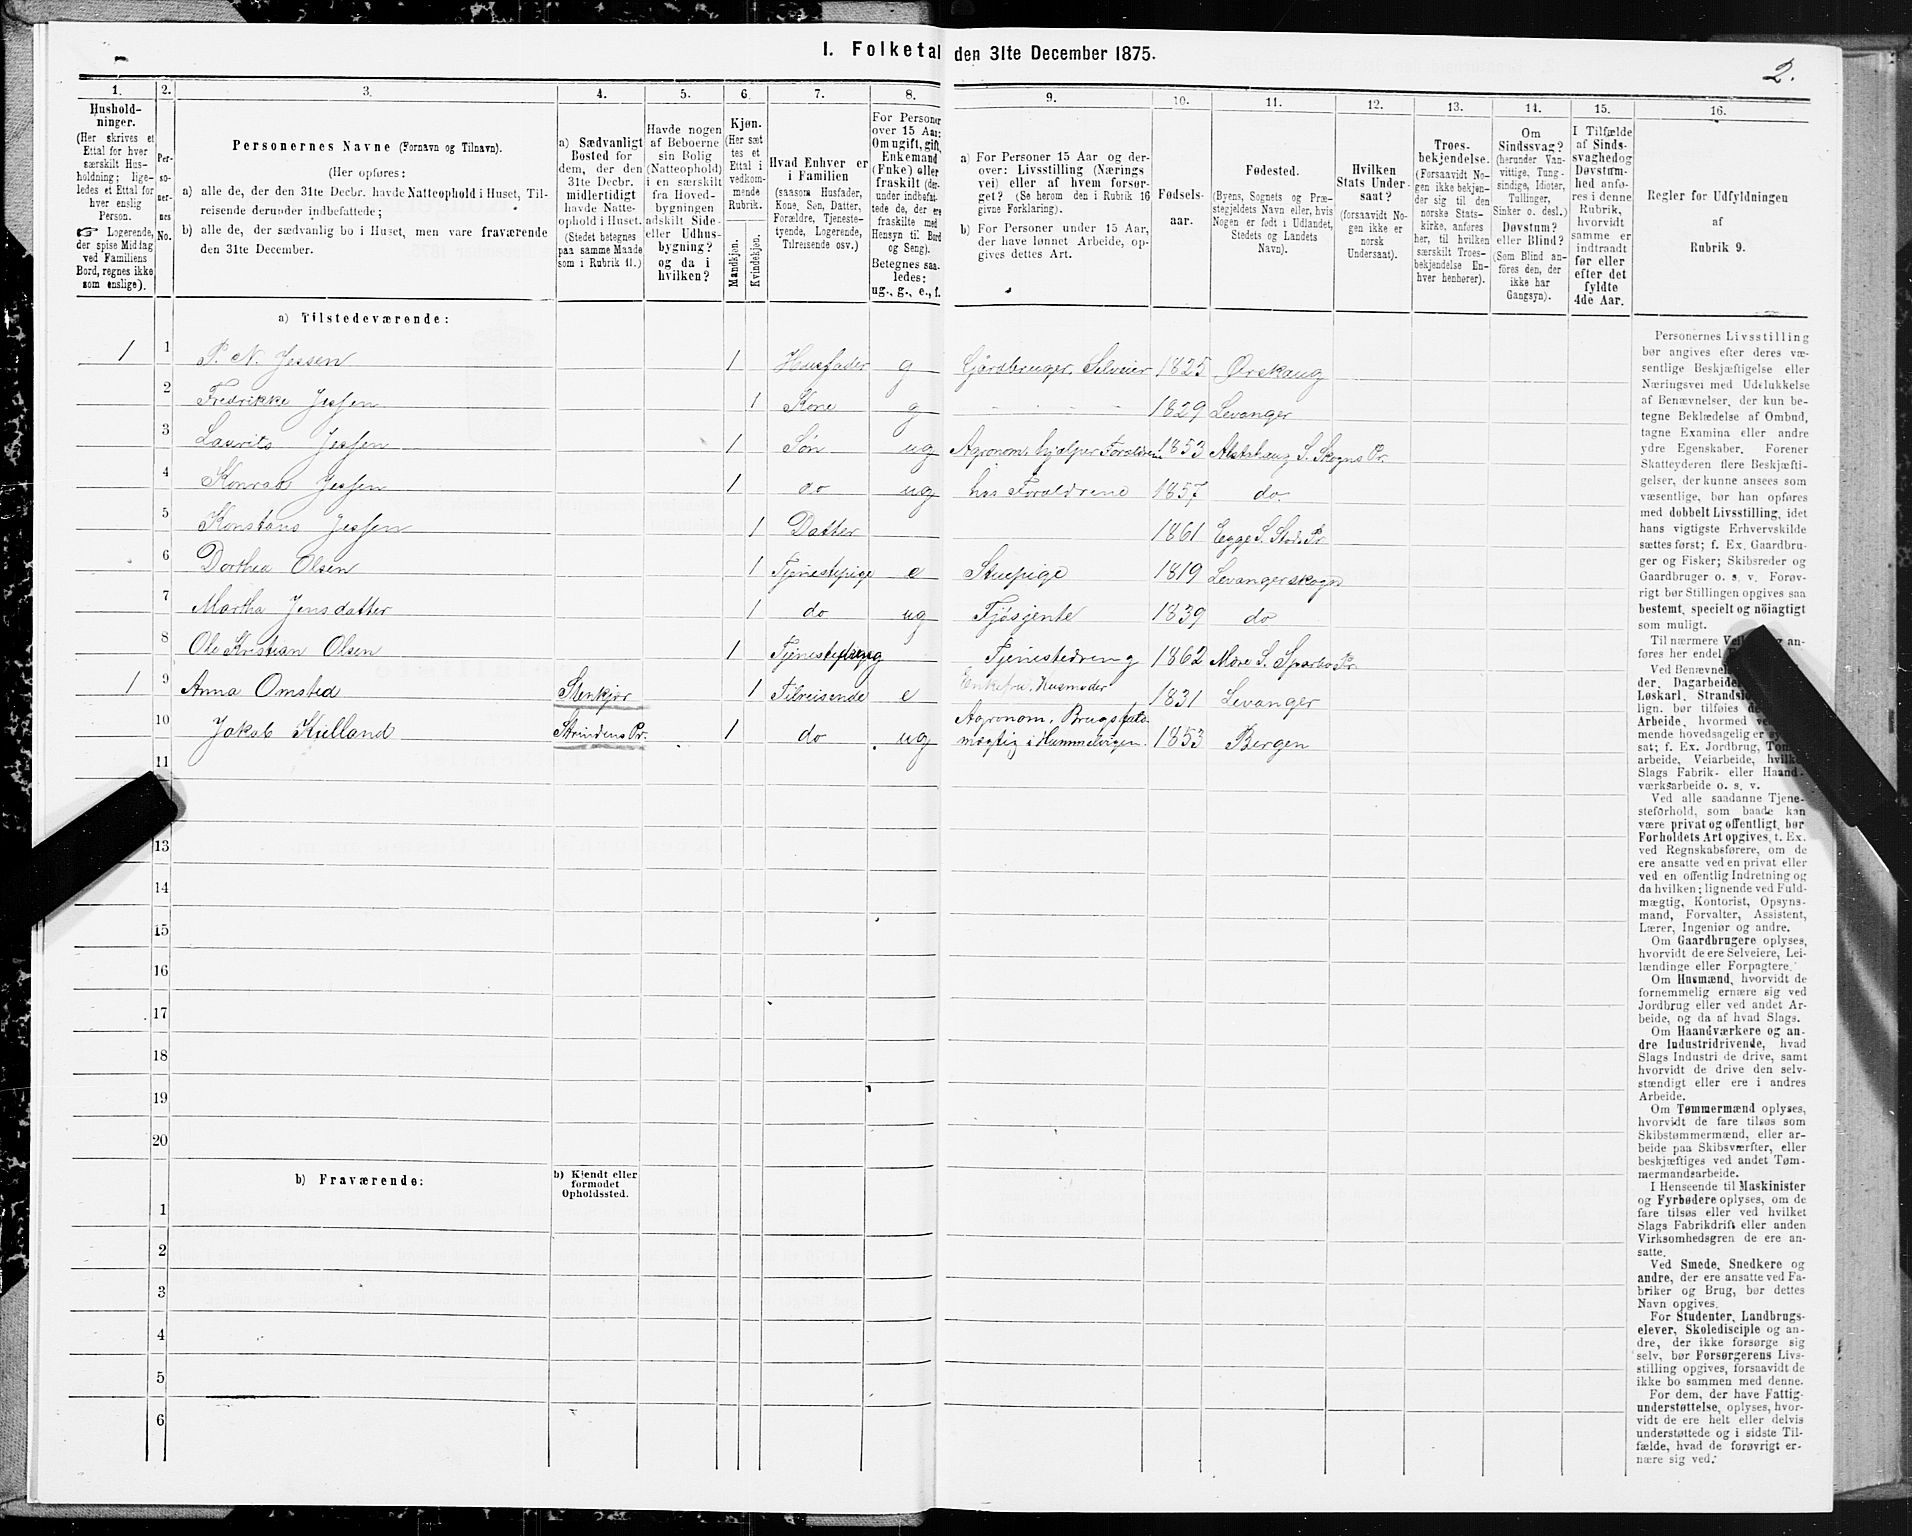 I. Folketal den 31te December 1875.
2.
1. 2. 3. 4. 5. 6. 7. 8. 9. 10. 11. 12. 13. 14. 15. 16.
Hushold-
ninger.
(Her skrives et
Ettal for hver
særskilt Hus-
holdning; lige-
ledes et Ettal for
hver enslig
Person.
☞ Logerende,
der spise Middag
ved Familiens
Bord, regnes ikke
som enslige).
Per-
so-
ner-
nes
No.
Personernes Navne (Fornavn og Tilnavn).
(Her opføres:
a) alle de, der den 31te Decbr. havde Natteophold i Huset, Til-
reisende derunder indbefattede;
b) alle de, der sædvanlig bo i Huset, men vare fraværende
den 31te December.
a) Sædvanligt
Bosted for
dem, der den
31te Decbr.
midlertidigt
havde Natte-
ophold i Huset.
(Stedet betegnes
paa samme Maade
som i Rubrik 11.)
Havde nogen
af Beboerne
sin Bolig
(Natteophold)
i en særskilt
fra Hoved-
bygningen
adskilt Side-
eller Udhus-
bygning?
og da i
hvilken?
Kjøn.
(Her sæt
tes et
Ettal i
vedkom-
mende
Rubrik.
Mandkjøn.
Kvindekjøn.
Hvad Enhver er
i Familien
(saasom Husfader,
Kone, Søn, Datter,
Forældre, Tjeneste-
tyende, Logerende,
Tilreisende osv.)
For Personer
over 15 Aar:
Om ugift, gift,
Enkemand
(Enke) eller
fraskilt (der-
under indbefat-
tede de, der ere
fraskilte med
Hensyn til Bord
og Seng).
Betegnes saa-
ledes:
ug., g., e., f.
a) For Personer 15 Aar og der-
over: Livsstilling (Nærings
vei) eller af hvem forsør-
get? (Se herom den i Rubrik 16
givne Forklaring).
b) For Personer under 15 Aar,
der have lønnet Arbeide, op-
gives dettes Art.
Fødsels-
aar.
Fødested.
(Byens, Sognets og Præ-
stegjeldets Navn eller, hvis
Nogen er født i Udlandet,
Stedets og Landets
Navn).
Hvilken
Stats Under-
saat?
(forsaavidt No-
gen ikke er
norsk
Undersaat).
Troes-
bekjendelse.
(Forsaavidt No-
gen ikke bekjen-
der sig til den
norske Stats-
kirke, anføres
her, til hvilken
særskilt Troes-
bekjendelse En-
hver henhører).
Om
Sindssvag?
(herunder Van-
vittige, Tung-
sindige, Idioter,
Tullinger,
Sinker o. desl.)
Døvstum?
eller Blind?
(Som Blind an-
føres den, der
ikke har
Gangsyn).
I Tilfælde
af Sinds-
svaghed og
Døvstum-
hed anfø-
res i denne
Rubrik,
hvorvidt
samme er
indtraadt
før eller
efter det
fyldte
4de Aar.
Regler for Udfyldningen
af
Rubrik 9.
a) Tilstedeværende:
1 1 P. N. Jessen 1 Husfader g Gårdbruger, Selveier 1825 Ørskaug
2 Fredrikke Jessen 1 Kone g 1829 Levanger
3 Laurits Jessen 1 Søn ug Agronom, hjælper Forældrene 1853 Alstahaug S. Skogns Pr.
4 Konrad Jessen 1 do ug hos Forældrene 1857 do.
5 Konstans Jessen 1 Datter 1861 Egge S. Stods Pr
6 Dorthea Olsen 1 Tjenestepige e Stuepige 1819 Levangerskogn
7 Martha Jensdatter 1 do ug Fjøsjente 1839 do
8 Ole Kristian Olsen 1 Tjenestedreng Tjenestedreng 1862 Mære S. Sparbo Pr.
1 9 Anna Omsted Stenkjær 1 Tilreisende e Enkefru, Husmoder 1831 Levanger
10 Jakob Kielland Strindens Pr. 1 do ug Agronom, Brugsfuld-
mægtig i Hummelvigen. 1853 Bergen
11
13
14
15
16
17
18
19
20
b) Fraværende:
b) Kjendt eller
formodet
Opholdssted.
1
2
3
4
5
6
Personernes Livsstilling
bør angives efter deres væ-
sentlige Beskjæftigelse eller
Næringsvei med Udelukkelse
af Benævnelser, der kun be-
tegne Beklædelse af Ombud,
tagne Examina eller andre
ydre Egenskaber. Forener
Skatteyderen flere Beskjæfti-
gelser, der kunne ansees som
væsentlige, bør han opføres
med dobbelt Livsstilling, idet
hans vigtigste Erhvervskilde
sættes først; f. Ex. Gaardbru-
ger og Fisker; Skibsreder og
Gaardbruger o. s. v. Forøv-
rigt bør Stillingen opgives saa
bestemt, specielt og nöiagtigt
som muligt.
Til nærmere an-
føres her endel
Ved Benævnel
der, Dagarbeide
Løskarl, Strandsi
lign. bør tilføies
Arbeide, hvormed
mende hovedsagelig er
sat; f. Ex. Jordbrug, Tom
arbeide, Veiarbeide, hvilke
Slags Fabrik- eller Haand-
værksarbeide o. s. v.
Ved alle saadanne Tjene-
steforhold, som baade kan
være privat og offentligt, bør
Forholdets Art opgives, t. Ex.
ved Regnskabsførere, om de
ere ansatte ved en privat eller
ved en offentlig Indretning og
da hvilken; lignende ved Fuld-
mægtig, Kontorist, Opsyns-
mand, Forvalter, Assistent,
Lærer, Ingeniør og andre.
Om Gaardbrugere oplyses,
hvorvidt de ere Selveiere, Lei-
lændinge eller Forpagtere.
Om Husmænd, hvorvidt de
fornemmelig ernære sig ved
Jordbrug eller ved andet Ar-
beide, og da af hvad Slags.
Om Haandværkere og an-
dre Industridrivende, hvad
Slags Industri de drive, samt
hvorvidt de drive den selv-
stændigt eller ere i andres
Arbeide.
Om Tømmermænd oplyses,
hvorvidt de fare tilsøs som
Skibstømmermænd, eller ar-
beide paa Skibsværfter, eller
beskjæftiges ved andet Tøm-
mermandsarbeide.
I Henseende til Maskinister
og Fyrbødere oplyses, om de
fare tilsøs eller ved hvilket
Slags Fabrikdrift eller anden
Virksomhedsgren de ere an-
satte.
Ved Smede, Snedkere og
andre, der ere ansatte ved Fa-
briker og Brug, bør dettes
Navn opgives.
For Studenter, Landbrugs-
elever, Skoledisciple og an-
dre, der ikke forsørge sig
selv, bør Forsørgerens Livs-
stilling opgives, forsaavidt de
ikke bo sammen med denne.
For dem, der have Fattig-
understøttelse, oplyses, hvor-
vidt de ere helt eller delvis
understøttede og i sidste Til-
fælde, hvad de forøvrigt er-
nære sig ved.